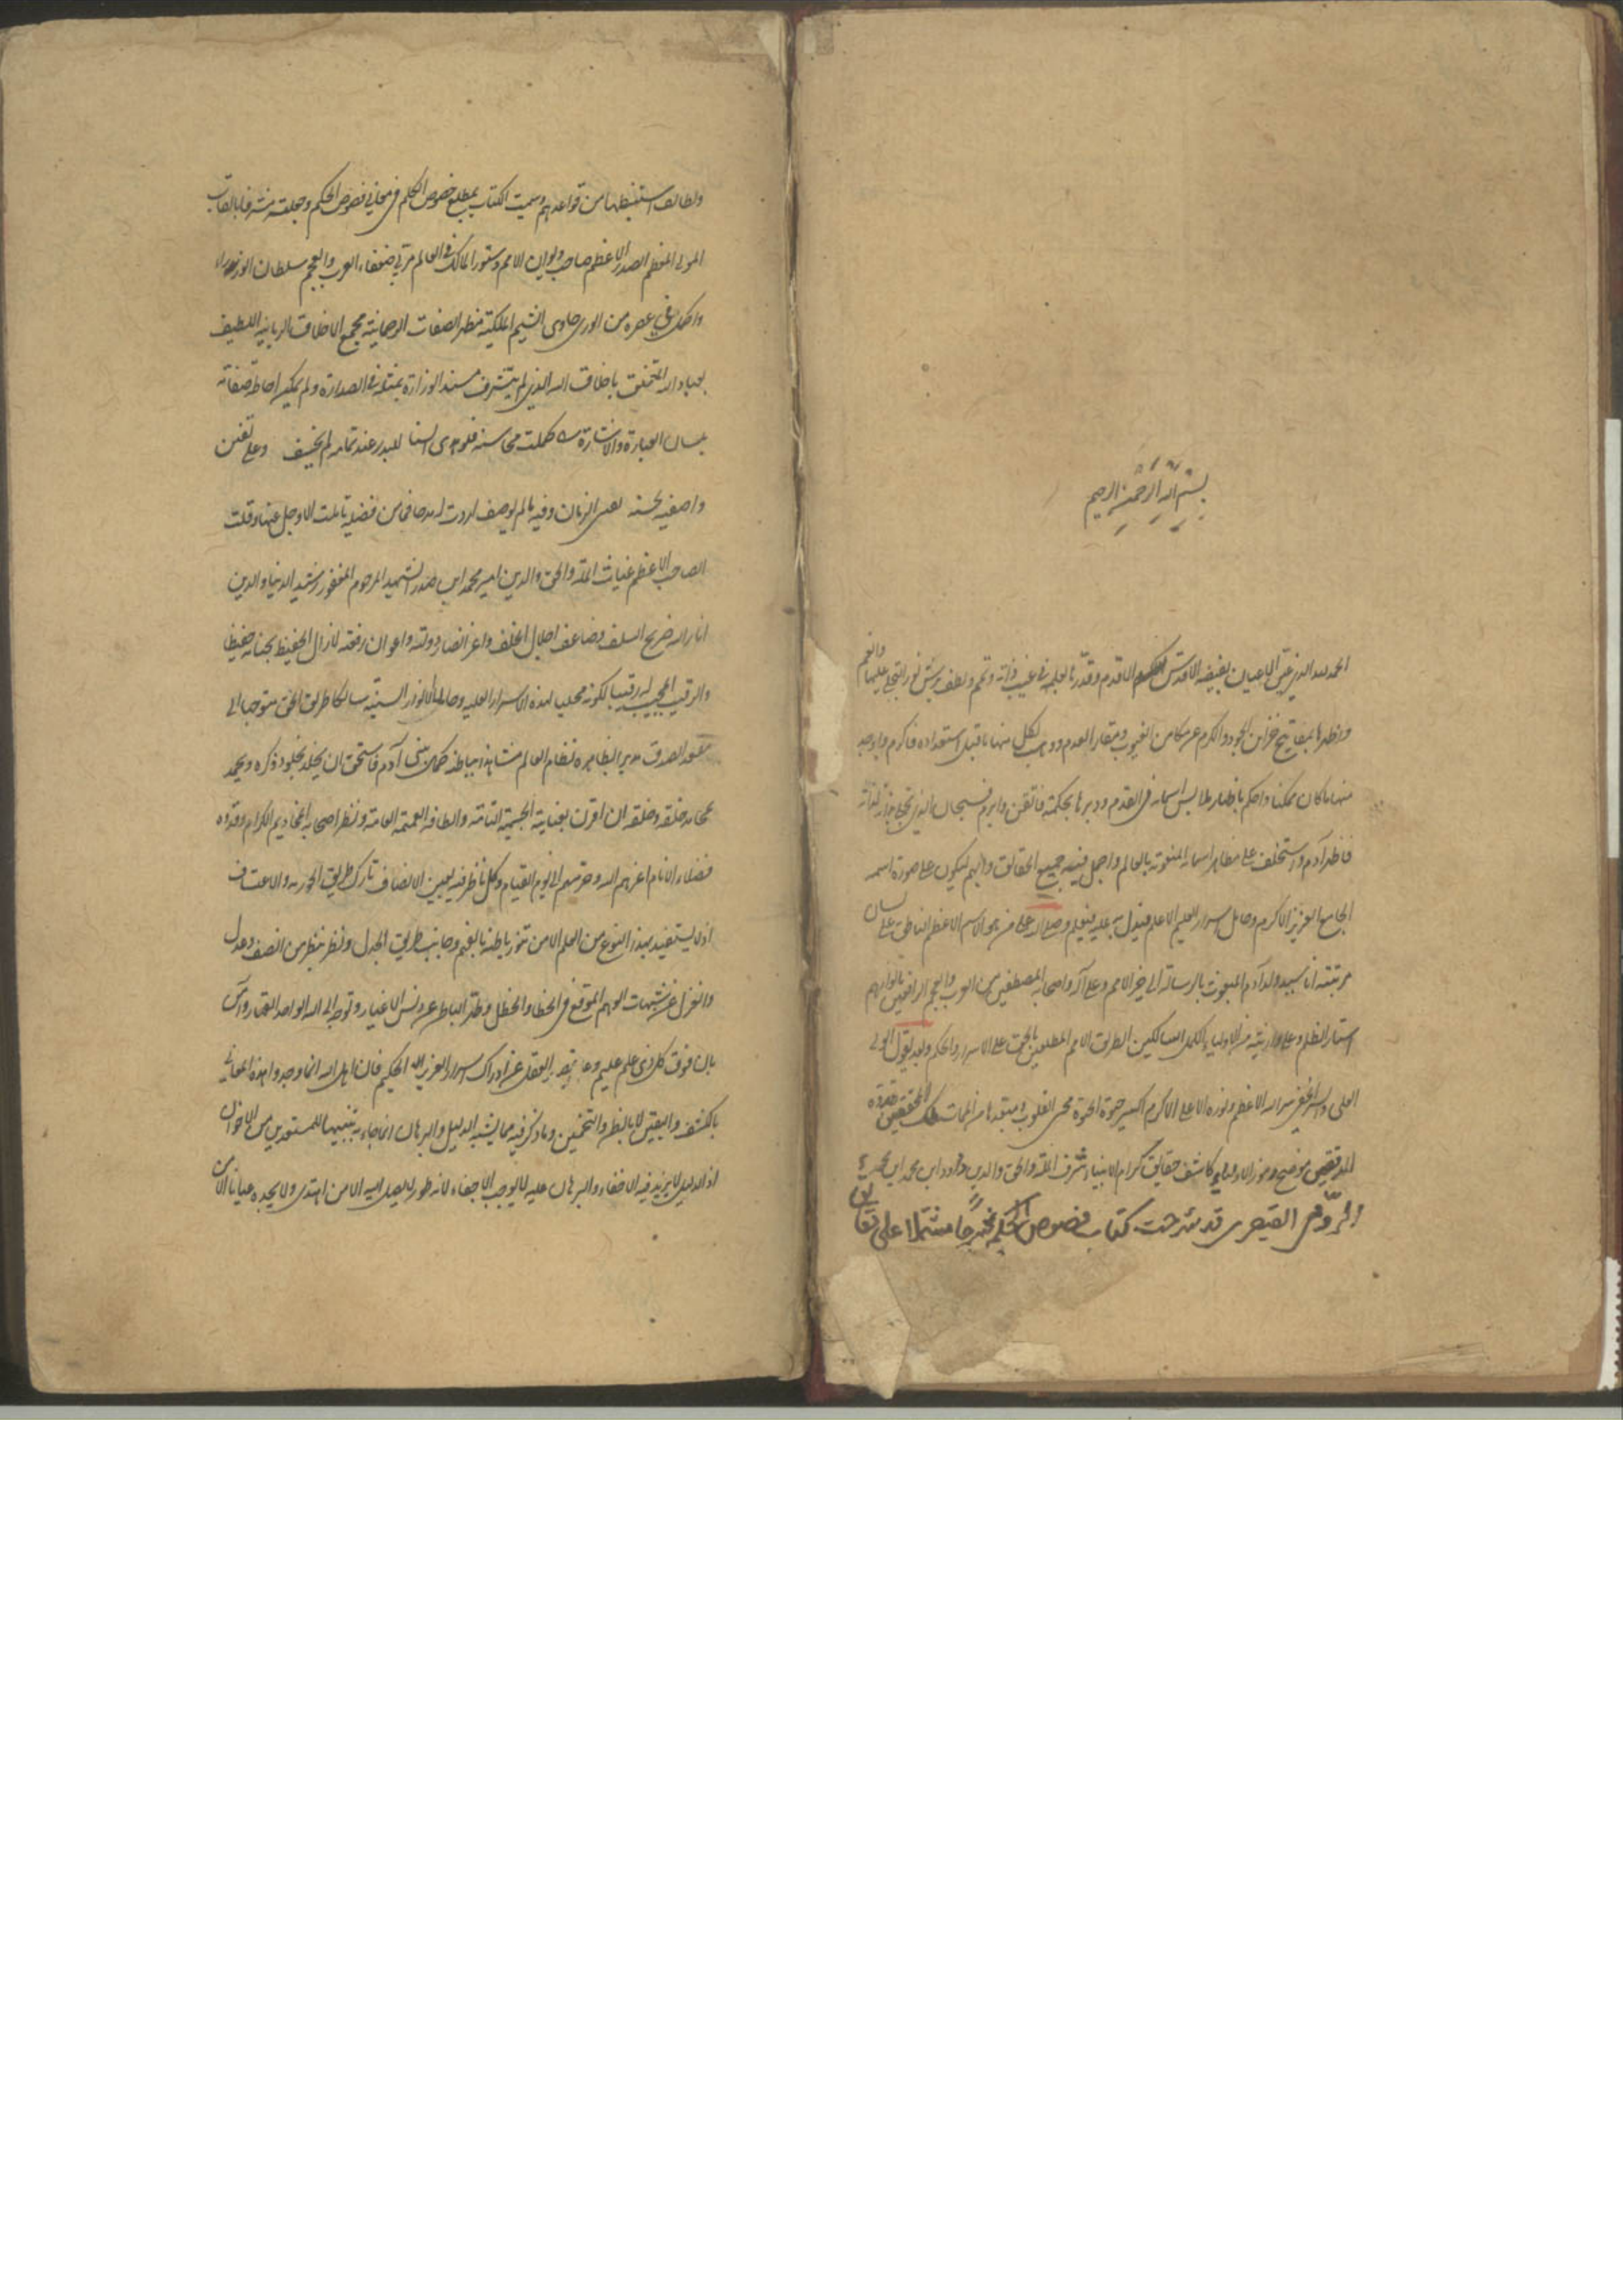 بسم الله الرحمن الرحيم
الحمد لله الذي عين الاعيان بفيضه الاقدس الاقدم وقدرها بعلمه في غيب ذاته وتمم ولطف برش نور التجلي عليها وانعم
واظهرها بمفاتيح خزاين الجود والكرم عن مكامن الغيوب ومقار العدم ووهب لكل منها ما قبل استعداده فاكرم واوجد
منها ما كان ممكنا واحكم باظهار ملابس اسمائه في القدم ودبرها بحكمته فاتقن وابرم فسبحان الذي تجلى بذاته لذاته
فاظهر آدم واستخلف على مظاهر اسمائه المنعوتة بالعالم واجمل فيه جميع الحقائق وابهم ليكون على صورة اسمه
الجامع العزيز الاكرم وحامل اسرار العليم الاعلم فيدل به عليه فيعلم وصلى الله على من هو الاسم الاعظم الناطق على لسان
مرتبته انا سيد ولد آدم المبعوث بالرسالة الى خير الامم وعلى آله واصحابه المصطفين من العرب والعجم الرافعين بانوارهم
استار الظلم وعلى وارثيه من الاولياء الكمل السالكين الطريق الامم المطلعين بالحق على الاسرار والحكم وبعد يقول المولى
العلي والسر الخفي سر الله الاعظم ونوره الاعلى الاكرم اكسير حيوة الحيوة محيي القلوب ملك المحققين قدوة
المدققين موضح رموز الاولياء كاشف حقايق كرام الانبياء شرف الملة والحق والدين داود ابن محمد ابن محمود
الرومي القيصري قد شرحت كتاب فصوص الحكم مشتملا على حقائق
ولطائف استنبطها من قواعدهم وسميت الكتاب بمطلع خصوص الكلم في معاني فصوص الحكم وجعلته مشرفا بالقاب
المولى المعظم الصدر الاعظم صاحب ديوان الامم دستور الممالك في العالم مربي ضعفاء العرب والعجم سلطان الوزراء
واكمل من في عصره من الورى حاوي الشيم الملكية مظهر الصفات الرحمانية مجمع الاخلاق الربانية اللطيف
بعباد الله المتخلق باخلاق الله الذي لم يتشرف مسند الوزارة بمثله في الصدارة ولم يمكن احاطة صفاته
بلسان العبارة والاشارة كملت محاسنه فلو اهدى السنا للبدر عند تمامه لم يخسف وعلى تفنن
واصفيه بحسنه يفنى الزمان وفيه ما لم يوصف اردت له مدحا فما من فضيلة تاملت الا وجل عنها وقلت
الصاحب الاعظم غياث الملة والحق والدين امير محمد ابن صدر الشهيد المرحوم المغفور رشيد الدنيا والدين
انار الله ضريح السلف وضاعف اجلال الخلف واعز انصار دولته واعوان رفعته لازال الحفيظ بجنابه حفيظا
والرقيب المجيب له رقيبا لكونه محليا لهذه الاسرار العلية وحاملا لانوار السنية سالكا طريق الحق متوجها الى
مقعد الصدق مدبرا بظاهره نظام العالم مشاهدا بباطنه كمال بني آدم فاستحق ان يخلد بخلود ذكره ويحمد
محامد خلقه وخلقه ان اقرن بعنايته الجسيمة التامة والطافه العميمة العامة ونظر اصحابه المخاديم الكرام وقدوة
فضلاء الانام اعزهم الله وحرسهم الى يوم القيام وكل ناظر فيه بعين الانصاف تارك طريق الجور والاعتساف
اذ لا يستفيد بهذا النوع من العلم الا من تنور باطنه بالفهم وجانب طريق الجدل ونظر بنظر من انصف وعدل
وانعزل عن شبهات الوهم الموقع في الخطا والخطل وطهر الباطن عن دنس الاغيار وتوجه الى الله الواحد القهار وامن
بان فوق كل ذي علم عليم وعلم عجز العقل عن ادراك اسرار العزيز الحكيم فان اهل الله انما وجدوا هذه المعاني
بالكشف واليقين لا بالظن والتخمين وما ذكر فيه مما يشبه الدليل والبرهان انما جاء به تنبيها للمستعدين من الاخوان
اذ الدليل لا يزيد فيه الا خفاء والبرهان عليه لا يوجب الا جفاء لانه طور لا يصل اليه الا من اهتدى ولا يجده عيانا الا من